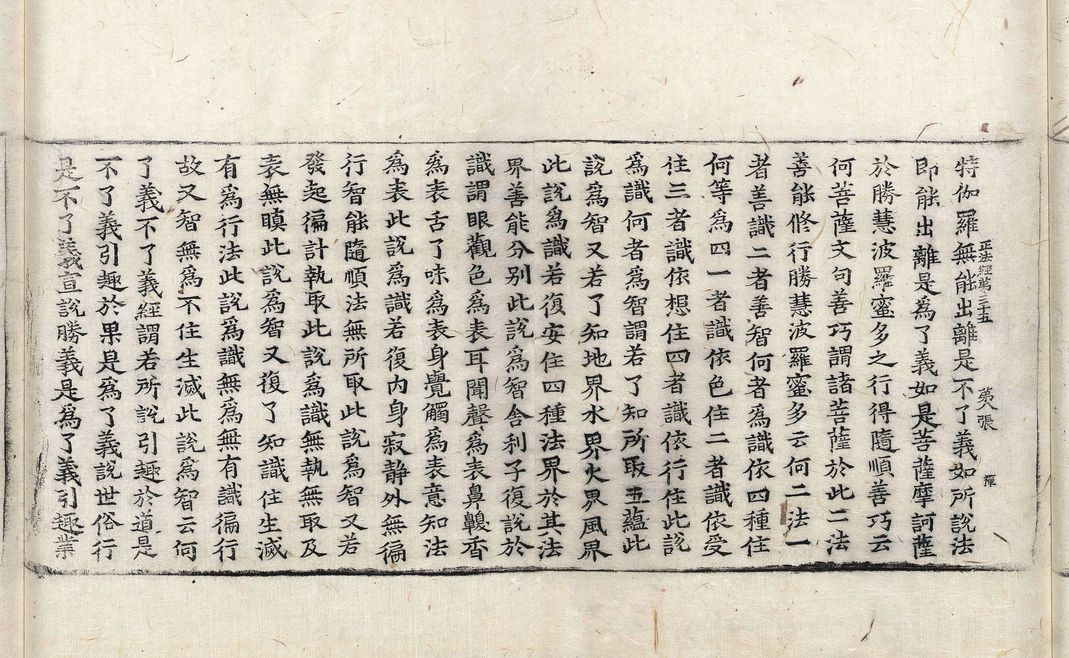 正法經第三十五 第八張 揮
特伽羅無能出離是不了義如所說法
即能出離是爲了義如是菩薩摩訶薩
於勝慧波羅蜜多之行得隨順善巧云
何菩薩文句善巧謂諸菩薩於此二法
善能修行勝慧波羅蜜多云何二法一
者善識二者善智何者爲識依四種住
何等爲四一者識依色住二者識依受
住三者識依想住四者識依行住此說
爲識何者爲智謂若了知所取五蘊此
說爲智又若了知地界水界火界風界
此說爲識若復安住四種法界於其法
界善能分別此說爲智舍利子復說於
識謂眼觀色爲表耳聞聲爲表鼻齅香
爲表舌了味爲表身覺觸爲表意知法
爲表此說爲識若復內身寂静外無徧
行智能隨順法無所取此說爲智又若
發起徧計執取此說爲識無執無取及
表無瞋此說爲智又復了知識住生滅
有爲行法此說爲識無爲無有識徧行
故又智無爲不住生滅此說爲智云何
了義不了義經謂若所說引趣於道是
不了義引趣於果是爲了義說世俗行
是不了義宣說勝義是爲了義引趣業